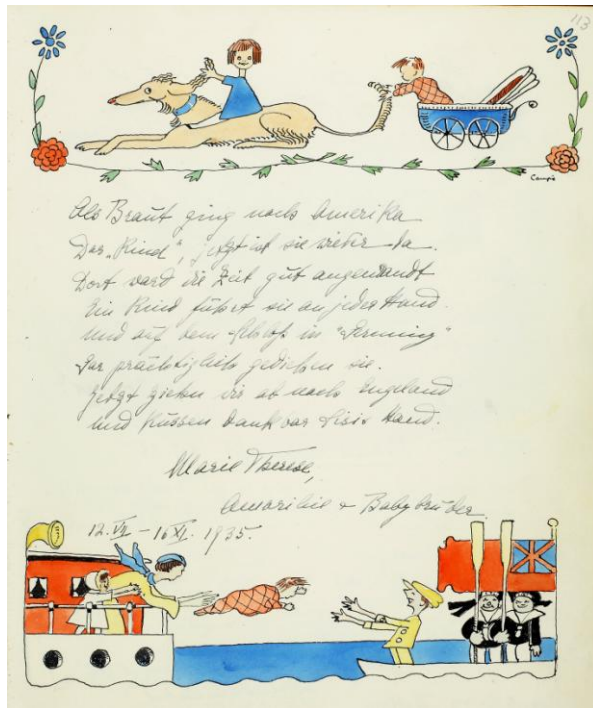 113
Campe
Als Braut ging nach Amerika
Das "Kind", jetzt ist sie wieder da.
Dort ward die Zeit gut angewandt
Ein Kind führt sie an jeder Hand.
Und auf dem Schloß in
Gar prächtiglich gediehen sie.
Jetzt ziehen wir ab nach England
und küssen dankbar Hand.
Marie Therese,
+ Babybruder.
12. VI – 16 XI. 1935.